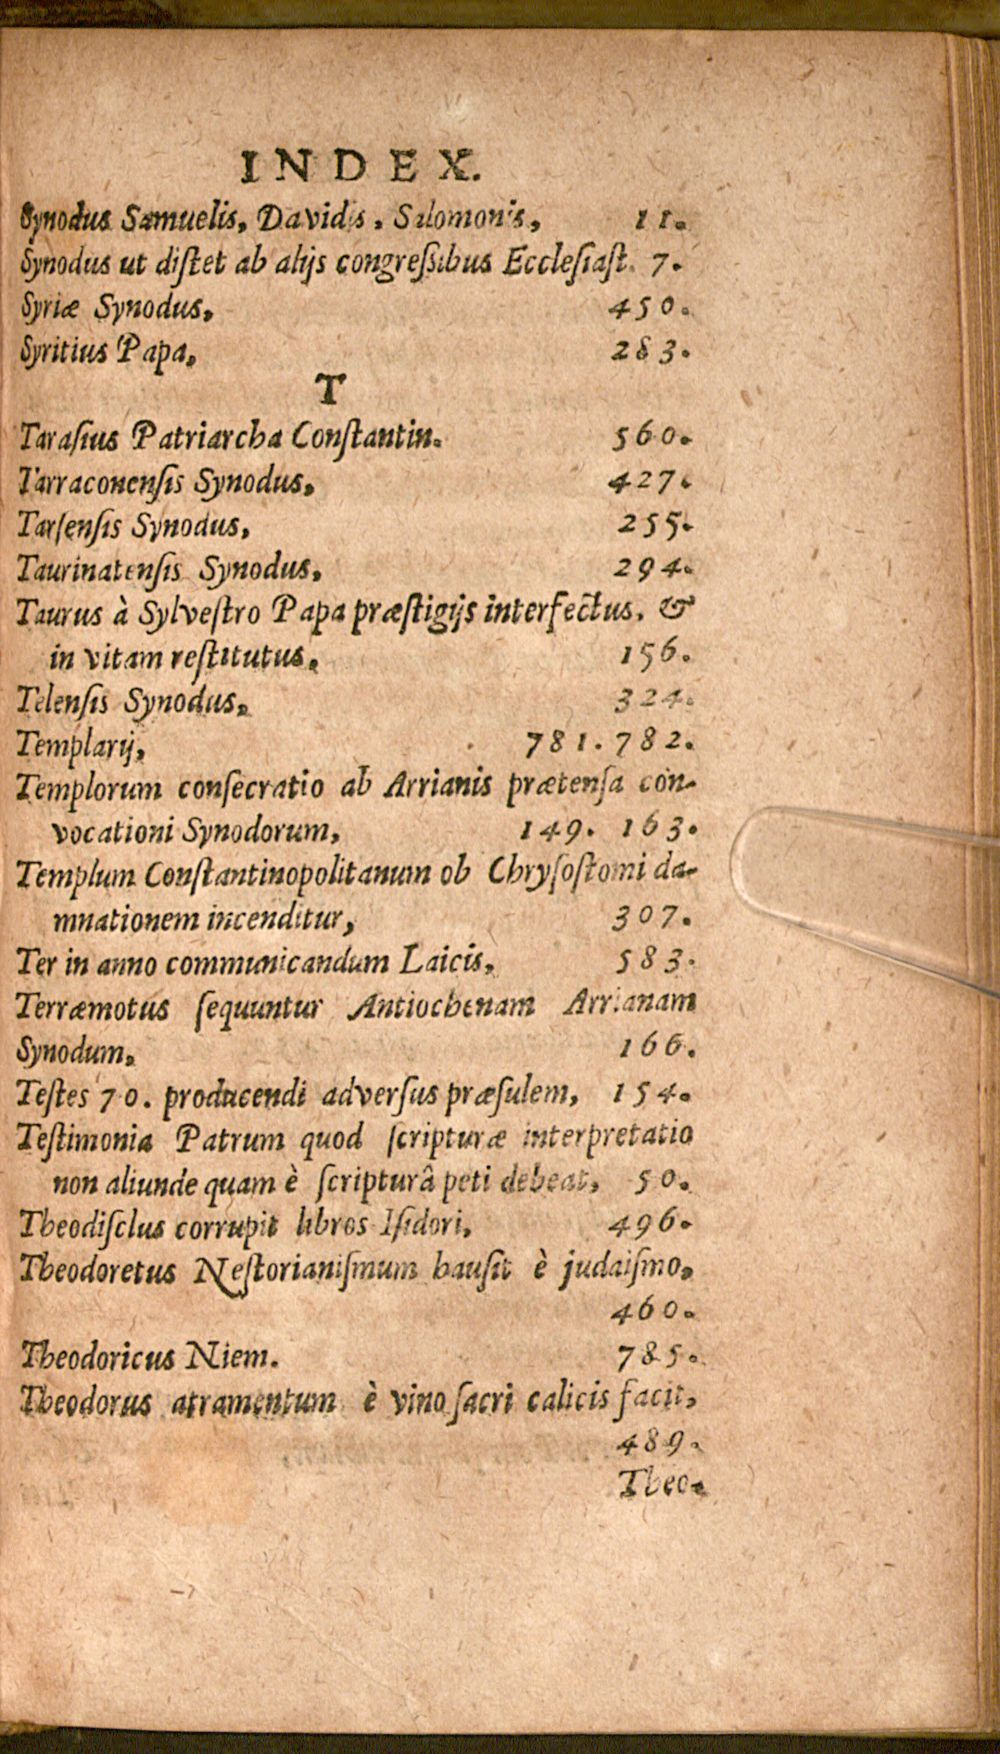 INDEX.
Synodus Samuelis, Davidis, Salomonis, 11.
Synodus ut diſtet ab alijs congreſſibus Eccleſiaſt. 7.
Syriæ Synodus, 450.
Syritius Papa, 283.
T
Taraſius Patriarcha Conſtantin. 560.
Tarraconenſis Synodus, 427.
Tarſenſis Synodus, 255.
Taurinatenſis Synodus, 294.
Taurus à Sylveſtro Papa præſtigijs interfectus, &
in vitam reſtitutus, 156.
Telenſis Synodus, 324.
Templarij, 781. 782.
Templorum conſecratio ab Arrianis prætenſa con-
vocationi Synodorum, 149. 163.
Templum Conſtantinopolitanum ob Chryſoſtomi da-
mnationem incenditur, 307.
Ter in anno communicandum Laicis, 583.
Terræmotus ſequuntur Antiochenam Arrianam
Synodum, 166.
Teſtes 70. producendi adverſus præſulem, 154.
Teſtimonia Patrum quod ſcripturæ interpretatio
non aliunde quam è ſcripturâ peti debeat, 50.
Theodiſclus corrupit libros Iſidori, 496.
Theodoretus Neſtorianiſmum hauſit è judaiſmo,
460.
Theodoricus Niem. 785.
Theodorus atramentum è vino ſacri calicis facit,
489.
Theo-